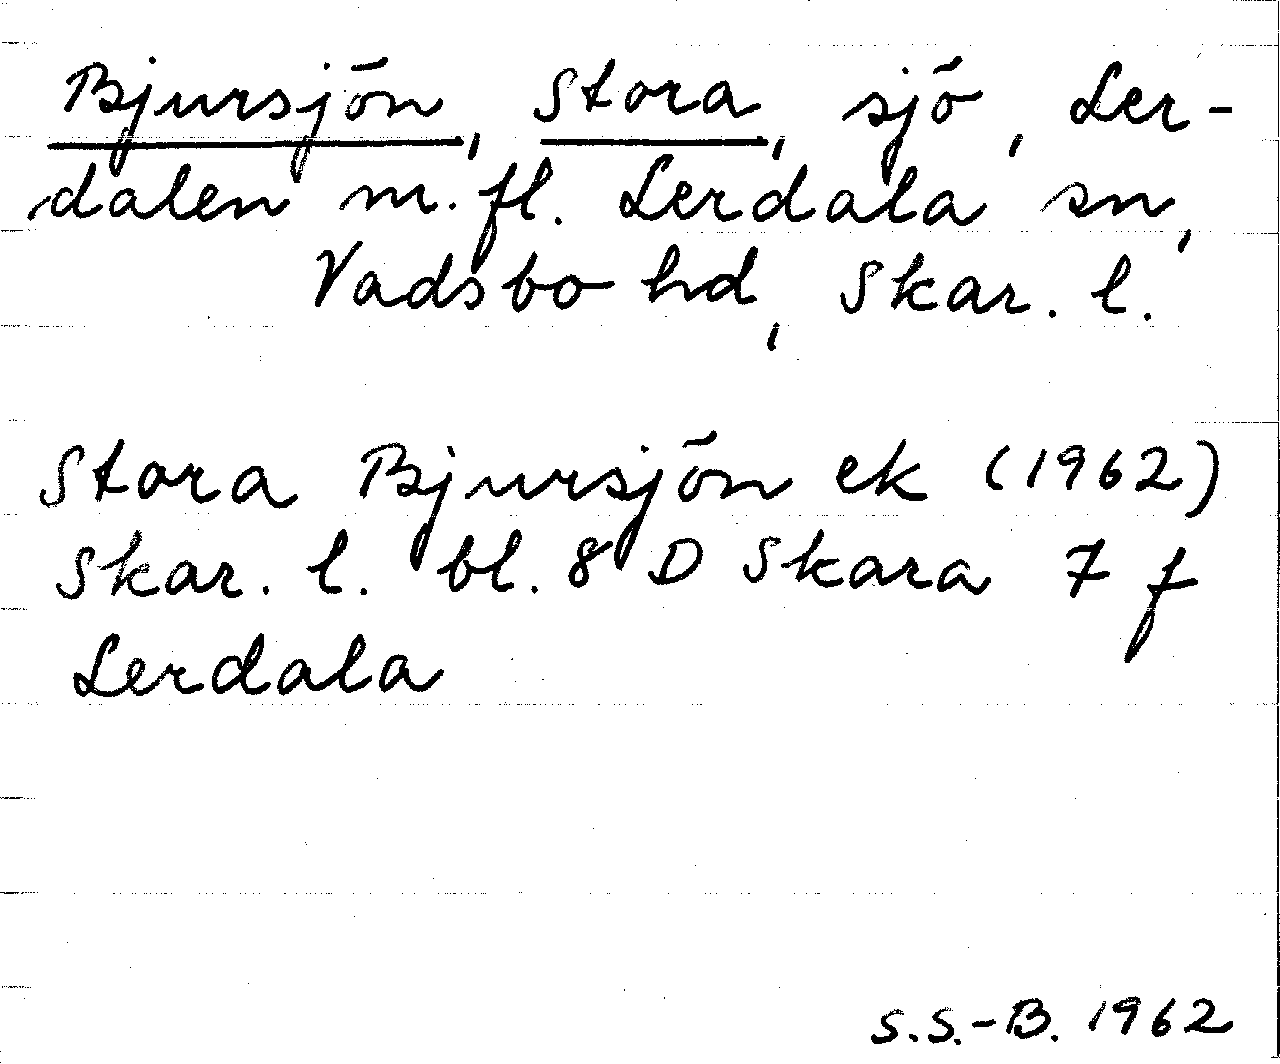 Bjursjön, Stora, sjö, Ler-
dalen m.fl. Lerdala sn,
Vadsbo hd, Skar. l.
Stora Bjursjön ek (1962)
Skar. l. bl. 8 D Skara 7 f
Lerdala
S.S.-B. 1962